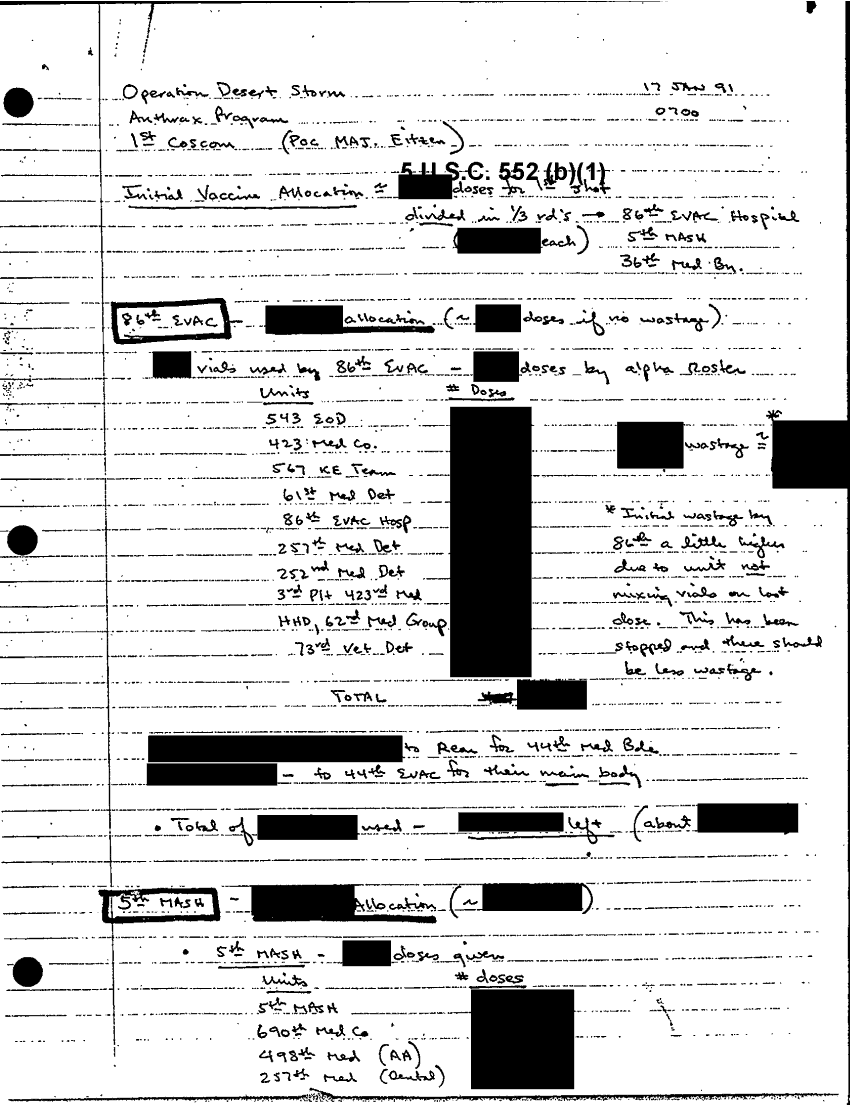 Operation Desert Storm 17 JAN 91
Anthrax Program 0700
1st Coscom (POC MAJ. Eitzen)
5 U.S.C. 552 (b)(1)
Initial Vaccine Allocation ≈ doses for 1st shot
divided in 1/3 rd's → 86th EVAC Hospital
( each) 5th MASH
36th Med Bn.
86th EVAC - allocation (~ doses if no wastage)
vials used by 86th EVAC - doses by alpha Roster
Units # Doses
543 EOD
423 Med Co. wastage ≈ *
567 KE Team
61st Med Det
86th EVAC Hosp
257th Med Det
252nd Med Det
3rd Plt 423rd Med
HHD, 62nd Med Group
73rd Vet Det
* Initial wastage by
86th a little higher
due to unit not
mixing vials on last
dose. This has been
stopped and there should
be less wastage.
TOTAL
to Rear for 44th Med Bde
- to 44th EVAC for their main body
• Total of used - left (about
5th MASH - Allocation (~ )
• 5th MASH - doses given
Units # doses
5th MASH
690th Med Co
498th Med (AA)
257th Med (Dental)